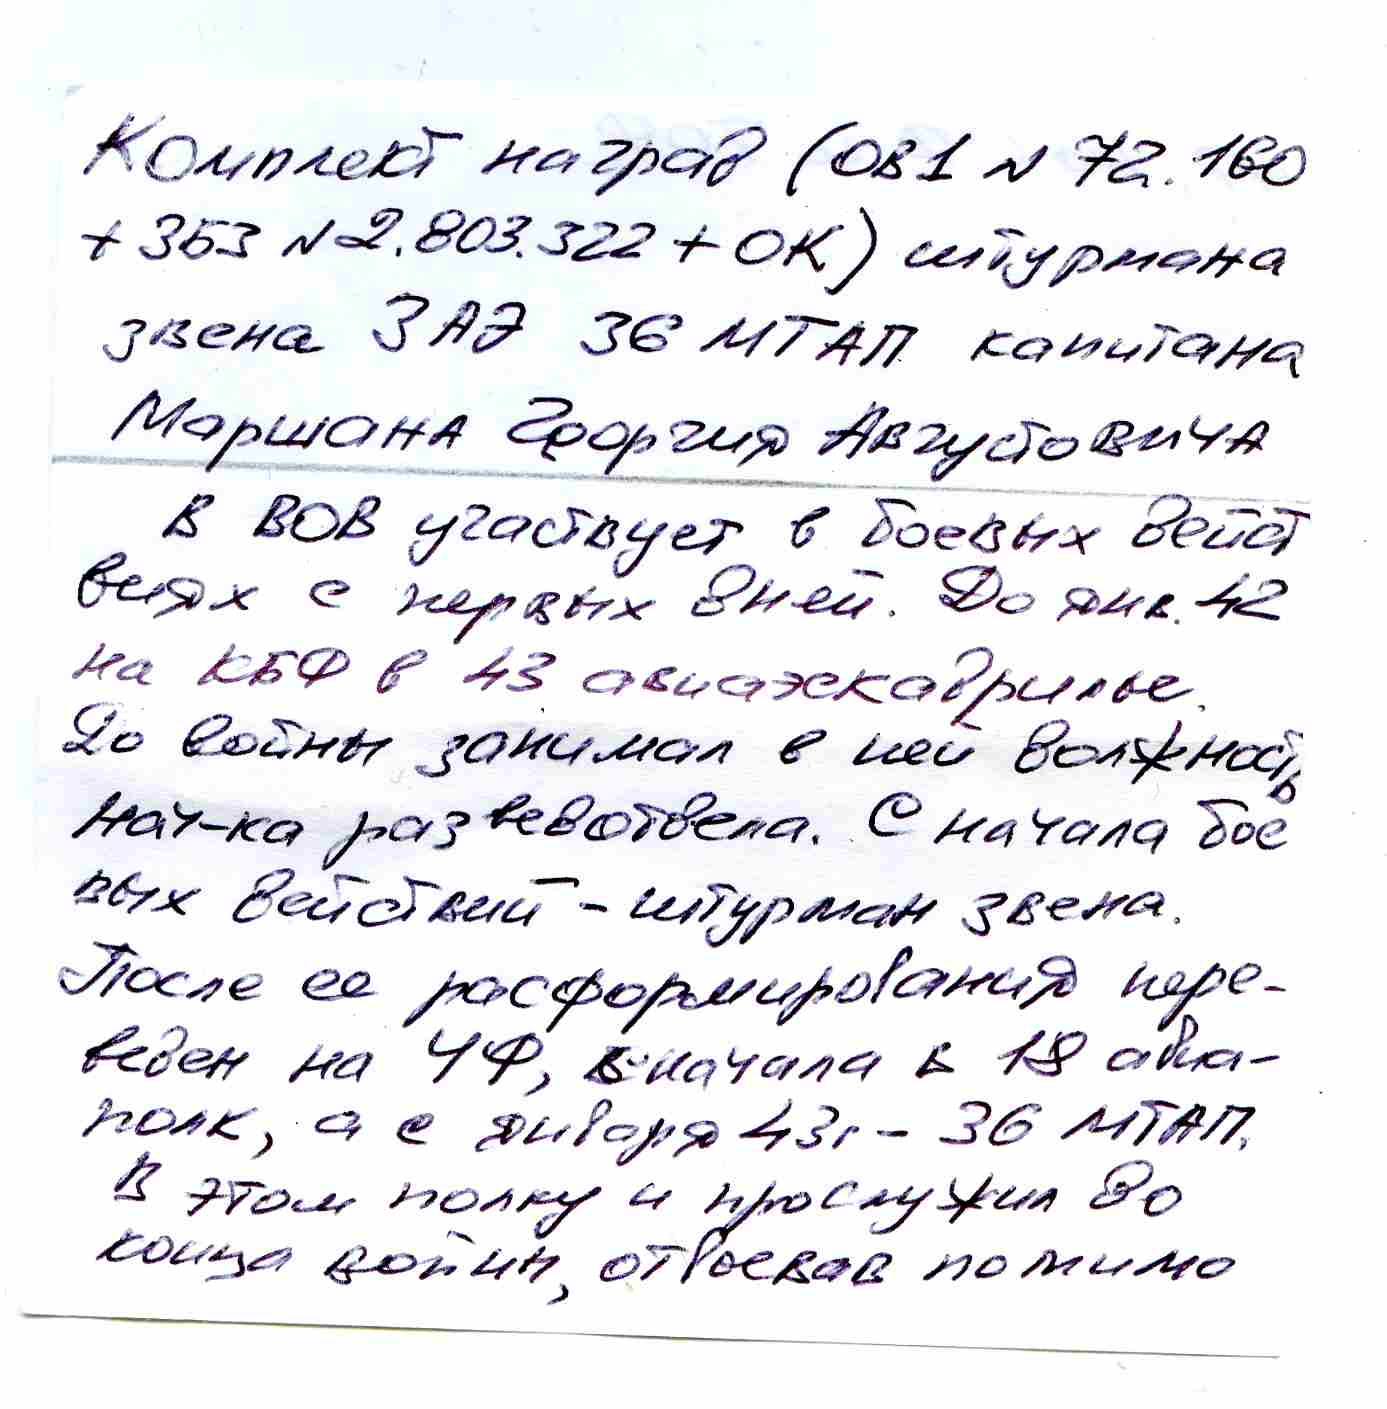 Комплект наград (ОВ1 N 72.160
+ ЗБЗ N 2.803.322 + ОК) штурмана
звена 3 АЭ 36 МТАП капитана
Маршана Георгия Августовича
В ВОВ участвует в боевых дейст
виях с первых дней. До янв. 42
на КБФ в 43 авиаэскадрилье.
До войны занимал в ней должность
нач-ка разведотдела. С начала бое
вых действий - штурман звена.
После ее расформирования пере-
веден на ЧФ, вначала в 18 авиа-
полк, а с января 43г - 36 МТАП.
В этом полку и прослужил до
конца войны, отвоевав помимо